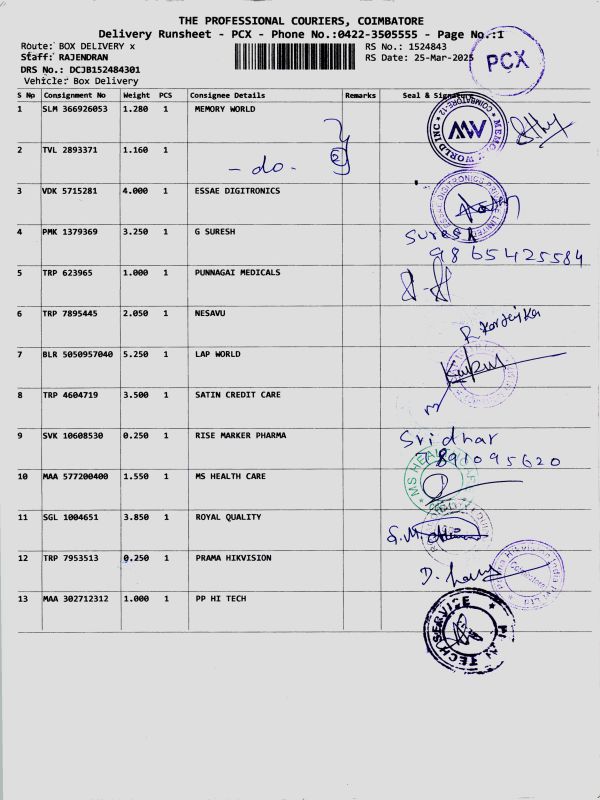 THE PROFESSIONAL COURIERS, COIMBATORE
Delivery Runsheet - PCX - Phone No.:0422-3505555 - Page No.:1
Route: BOX DELIVERY x
RS No.: 1524843
Staff: RAJENDRAN
RS Date: 25-Mar-2025
PCX
DRS No.: DCJB152484301
Vehicle: Box Delivery
S No Consignment No Weight PCS Consignee Details Remarks Seal & Signature
1 SLM 366926053 1.280 1 MEMORY WORLD
2 TVL 2893371 1.160 1
- do -
3 VDK 5715281 4.000 1 ESSAE DIGITRONICS
4 PMK 1379369 3.250 1 G SURESH
Suresh
9865425584
5 TRP 623965 1.000 1 PUNNAGAI MEDICALS
6 TRP 7895445 2.050 1 NESAVU
7 BLR 5050957040 5.250 1 LAP WORLD
8 TRP 4604719 3.500 1 SATIN CREDIT CARE
9 SVK 10608530 0.250 1 RISE MARKER PHARMA
Sridhar
7891095620
10 MAA 577200400 1.550 1 MS HEALTH CARE
MS HEALTH
11 SGL 1004651 3.850 1 ROYAL QUALITY
12 TRP 7953513 0.250 1 PRAMA HIKVISION
13 MAA 302712312 1.000 1 PP HI TECH
TECH SERVICE